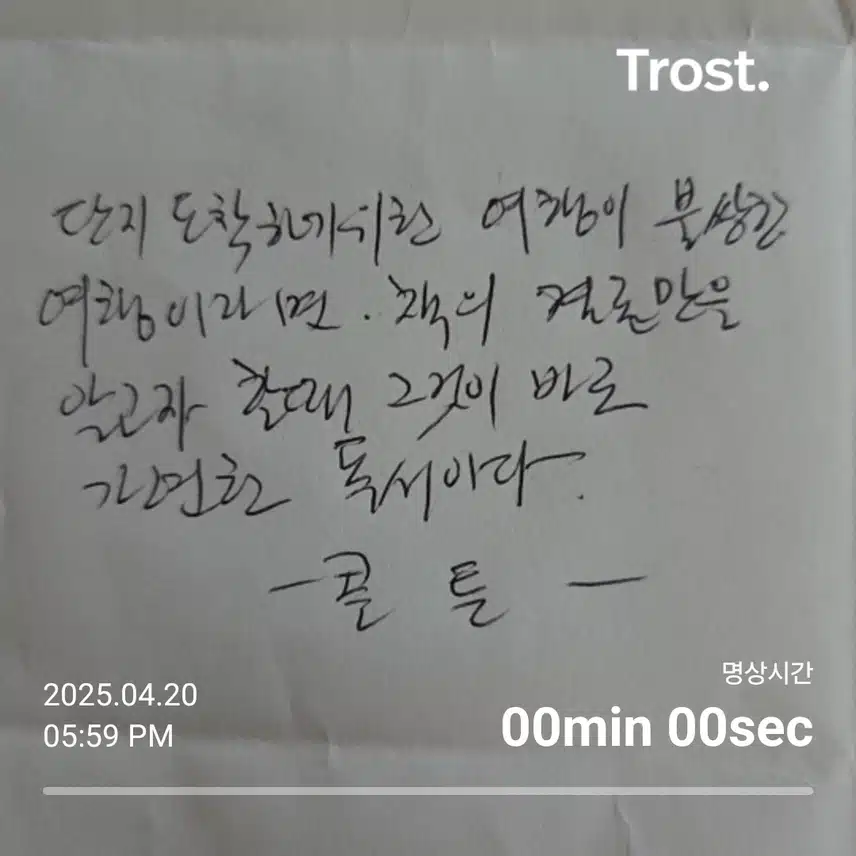 Trost.
단지 도착하기위한 여행이 불쌍한
여행이라면. 책의 결론만을
알고자 할때 그것이 바로
가엾한 독서이다.
-콜 튼 -
명상시간
2025.04.20
00min 00sec
05:59 PM